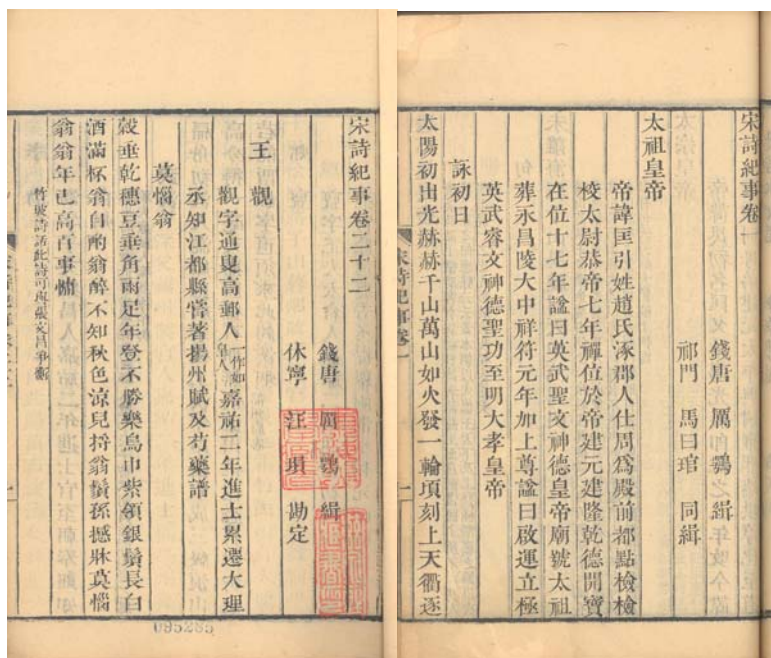 宋詩紀事卷一
錢唐 厲鶚 緝
祁門 馬曰琯 同緝
太祖皇帝
帝諱匡引姓趙氏涿郡人仕周為殿前都點檢檢
校太尉恭帝七年禪位於帝建元建隆乾德開寶
在位十七年諡曰英武聖文神德皇帝廟號太祖
葬永昌陵大中祥符元年加上尊諡曰啟運立極
英武睿文神德聖功至明大孝皇帝
詠初日
太陽初出光赫赫千山萬山如火發一輪頃刻上天衢逐
宋詩紀事卷一
一
宋詩紀事卷二十二
錢唐 厲鶚 緝
休寧 汪 勘定
王觀
觀字通叟高郵人一作如皋人嘉祐二年進士累遷大理
丞知江都縣嘗著揚州賦及芍藥譜
莫惱翁
穀垂乾穗豆垂角雨足年登不勝樂烏巾紫領銀鬚長白
酒滿杯翁自酌翁醉不知秋色涼兒捋翁鬚孫撼牀莫惱
翁翁年已高百事慵
竹坡詩話此詩可與張文昌爭衡
一
095285